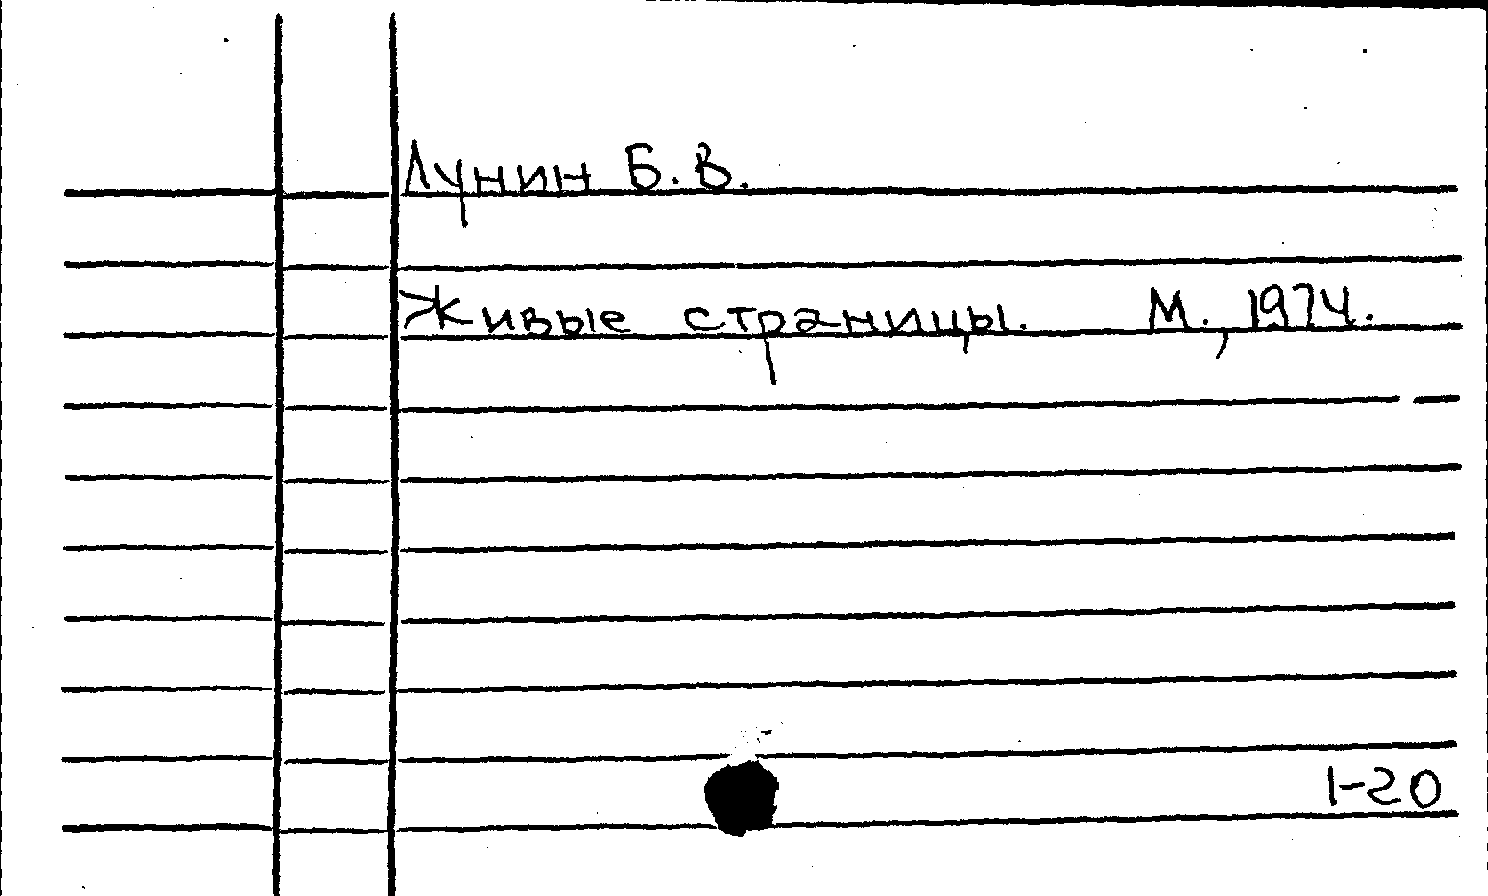 Лунин Б. В.
Живые страницы. М., 1974.
1-20